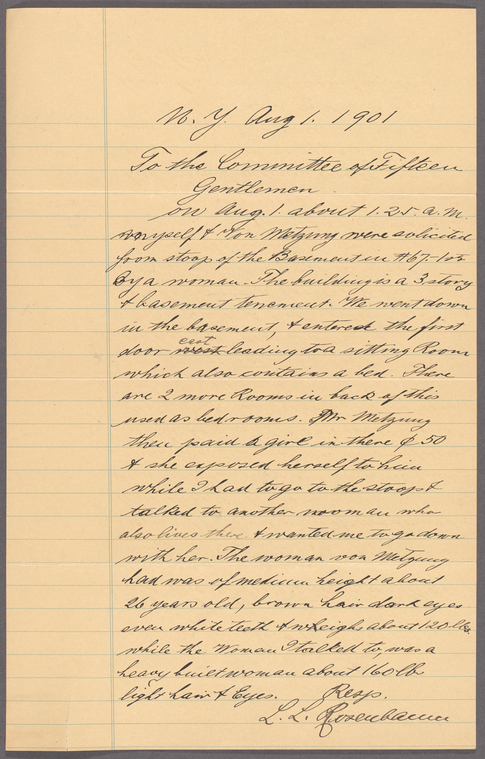 N. Y. Aug 1. 1901
To the Committee of Fifteen
Gentlemen
on Aug. 1. about 1.25. a.m.
myself & Von Metzung were solicited
from stoop of the Basement in #67-1st
By a woman. The building is a 3 story
& basement tenement. We went down
in the basement, & entered the first
east
door west leading to a sitting Room
which also contains a bed. There
are 2 more Rooms in back of this
used as bedrooms. Mr Metzung
then paid a girl in there ¢ 50
& she exposed herself to him
while I had to go to the stoop &
talked to another woman who
also lives there & wanted me to go down
with her. The woman von Metzung
had was of medium height about
26 years old, brown hair dark eyes
even white teeth & weighs about 120 lbs
while the Woman I talked to, was a
heavy built woman about 160 lb
light hair & Eyes. Resp.
L. L. Rosenbaum